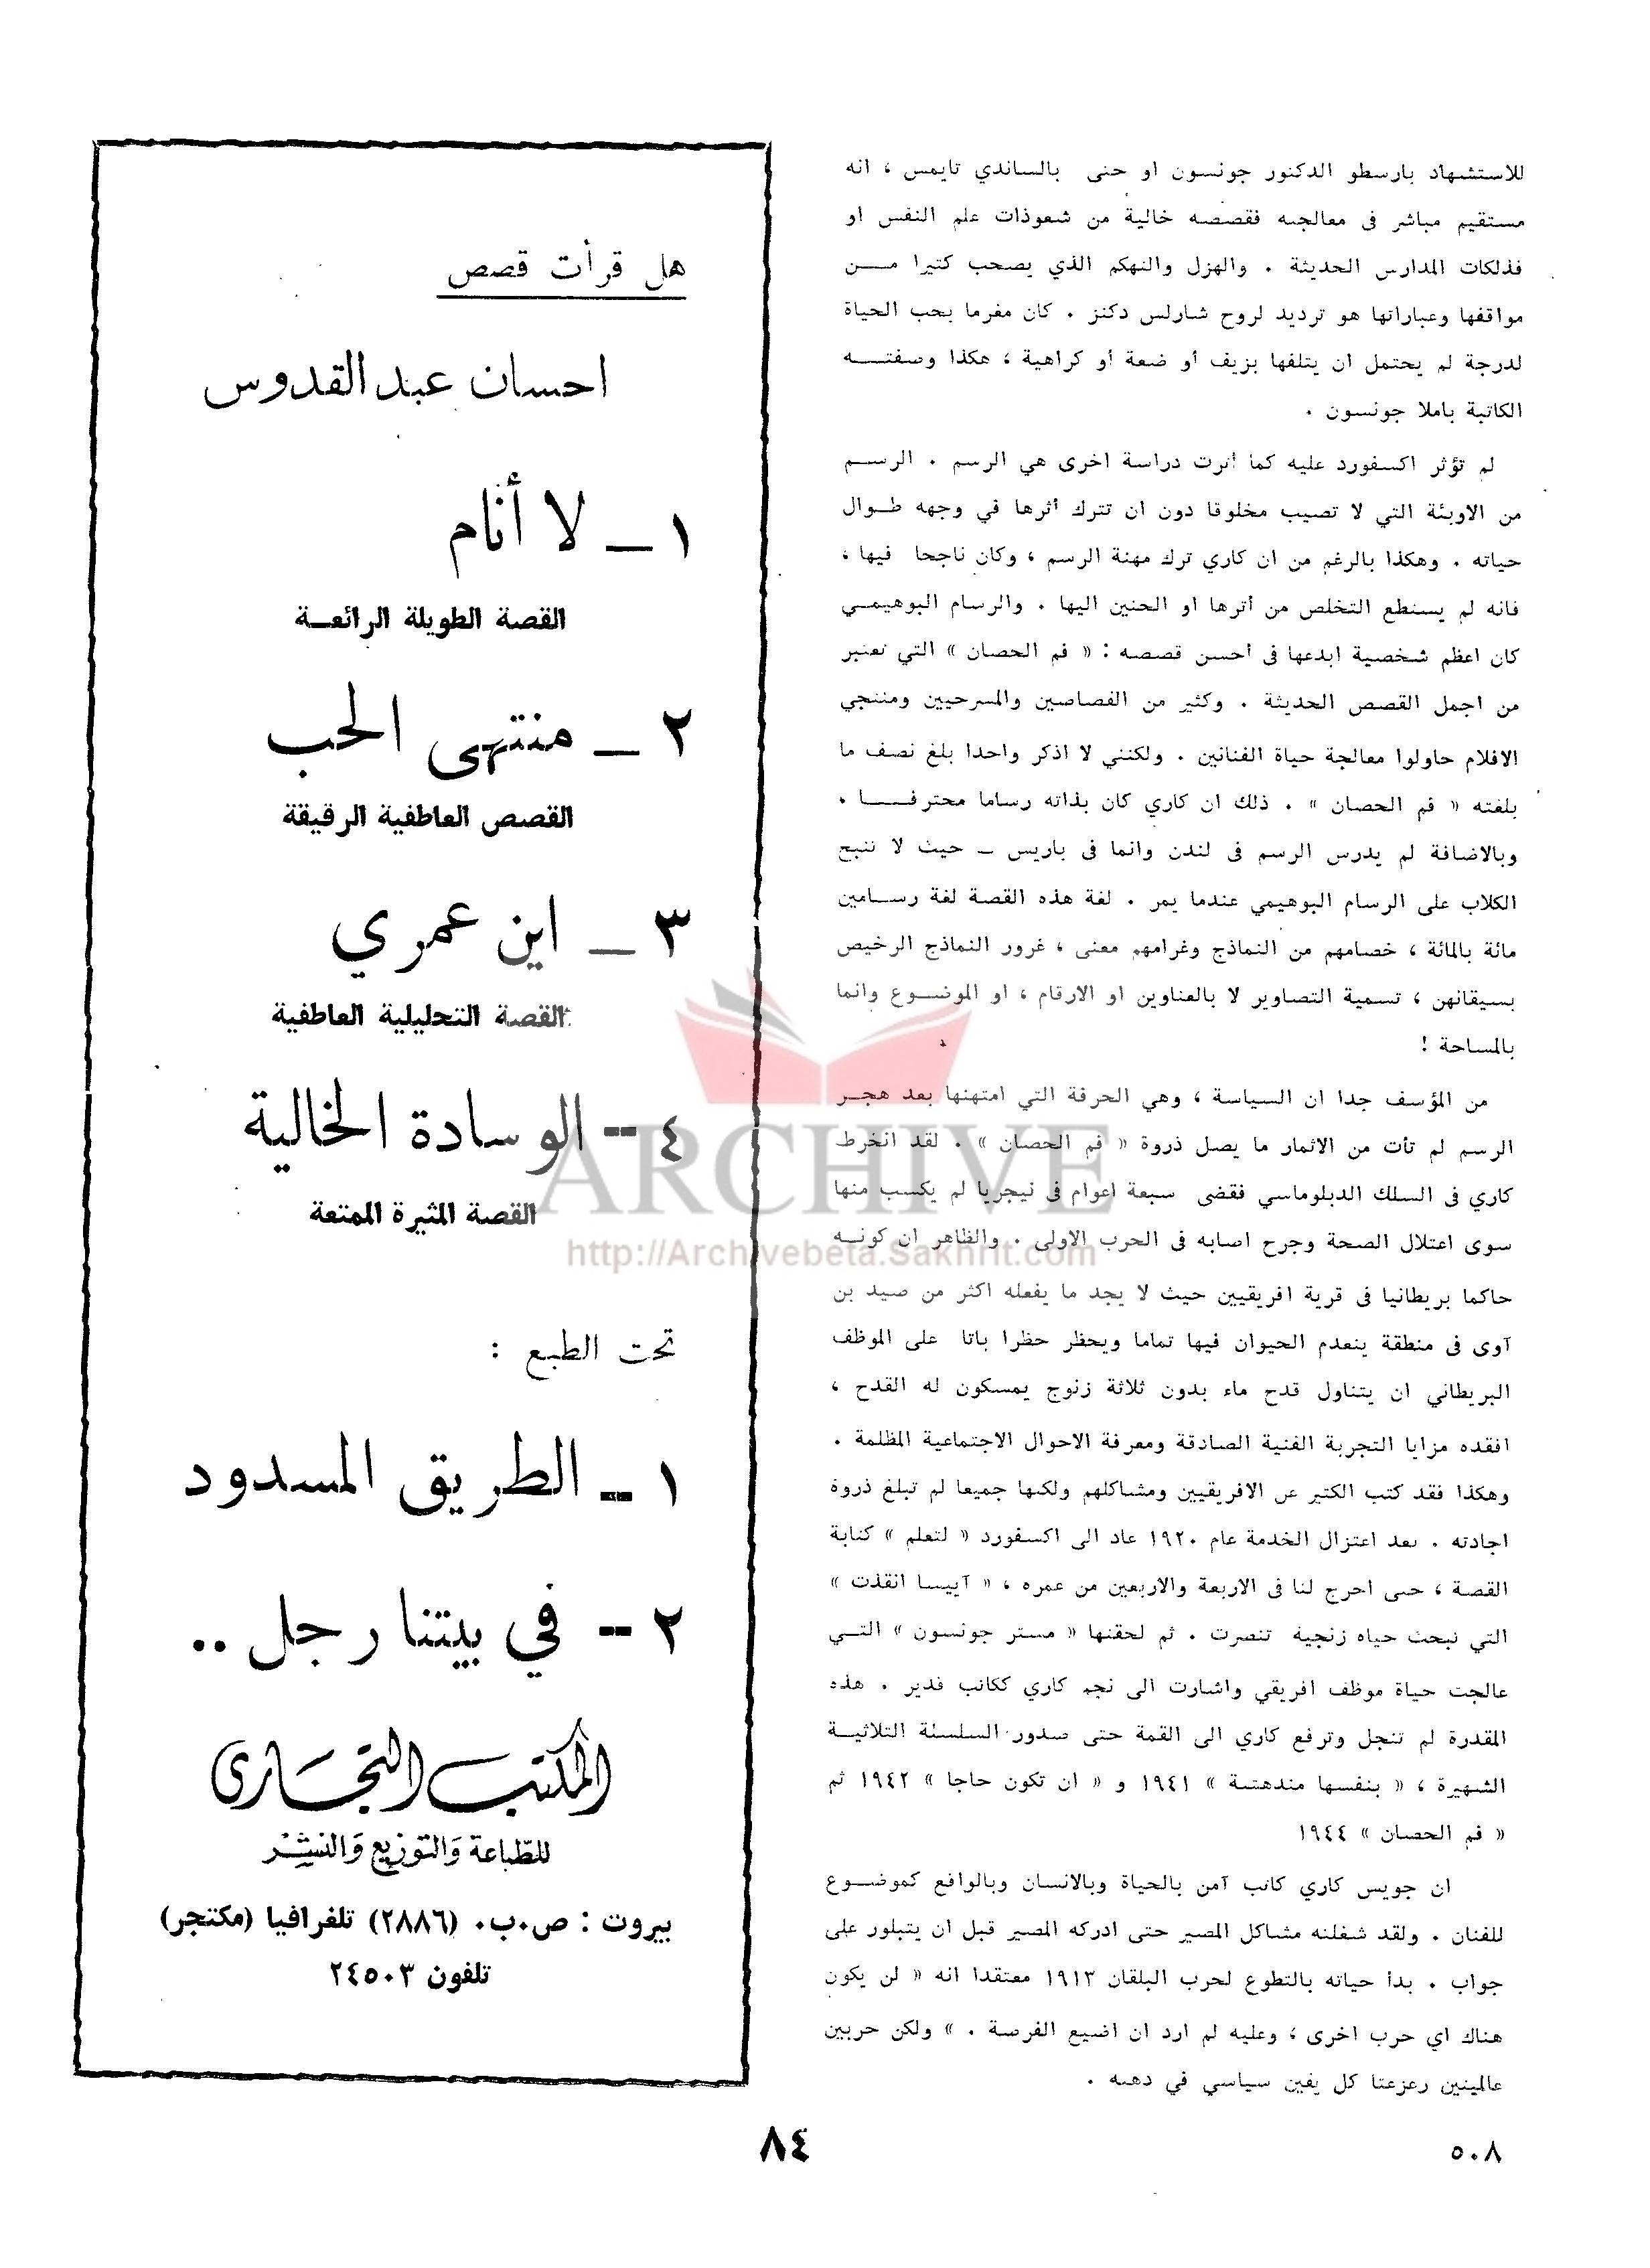 للاستشهاد بارسطو الدكتور جونسون او حتى بالساندي تايمس ، انه
مستقيم مباشر في معالجته فقصصه خالية من شعوذات علم النفس او
فذلكات المدارس الحديثة . والهزل والتهكم الذي يصحب كثيرا مــن
مواقفها وعباراتها هو ترديد لروح شارلس دكنز . كان مغرما بحب الحياة
لدرجة لم يحتمل ان يتلفها بزيف أو ضعة أو كراهية ، هكذا وصفتــه
الكاتبة باملا جونسون .
لم تؤثر اكسفورد عليه كما أثرت دراسة اخرى هي الرسم . الرســم
من الاوبئة التي لا تصيب مخلوقا دون ان تترك أثرها في وجهه طــوال
حياته . وهكذا بالرغم من ان كاري ترك مهنة الرسم ، وكان ناجحا فيها ،
فانه لم يستطع التخلص من أثرها او الحنين اليها . والرسام البوهيمــي
كان اعظم شخصية ابدعها في احسن قصصه : « فم الحصان » التي تعتبر
من اجمل القصص الحديثة . وكثير من القصاصين والمسرحيين ومنتجي
الافلام حاولوا معالجة حياة الفنانين . ولكنني لا اذكر واحدا بلغ نصف ما
بلغته « فم الحصان » . ذلك ان كاري كان بذاته رساما محترفــا ،
وبالاضافة لم يدرس الرسم في لندن وانما في باريس ــ حيث لا تنبح
الكلاب على الرسام البوهيمي عندما يمر . لغة هذه القصة لغة رســامين
مائة بالمائة ، خصامهم من النماذج وغرامهم معنى ، غرور النماذج الرخيص
بسيقانهن ، تسمية التصاوير لا بالعناوين او الارقام ، او الموضــوع وانما
بالمساحة !
من المؤسف جدا ان السياسة ، وهي الحرفة التي امتهنها بعد هجــر
الرسم لم تأت من الاثمار ما يصل ذروة « فم الحصان » . لقد انخرط
كاري في السلك الدبلوماسي فقضى سبعة اعوام في نيجريا لم يكسب منها
سوى اعتلال الصحة وجرح اصابه في الحرب الاولى . والظاهر ان كونــه
حاكما بريطانيا في قرية افريقيين حيث لا يجد ما يفعله اكثر من صيد بن
آوى في منطقة ينعدم الحيوان فيها تماما ويحظر حظرا باتا على الموظف
البريطاني ان يتناول قدح ماء بدون ثلاثة زنوج يمسكون له القدح ،
افقده مزايا التجربة الفنية الصادقة ومعرفة الاحوال الاجتماعية المظلمة .
وهكذا فقد كتب الكثير عن الافريقيين ومشاكلهم ولكنها جميعا لم تبلغ ذروة
اجادته . بعد اعتزال الخدمة عام ١٩٢٠ عاد الى اكسفورد « لتعلم » كتابة
القصة ، حتى اخرج لنا في الاربعة والاربعين من عمره ، « آييسا انقذت »
التي تبحث حياة زنجية تنصرت . ثم لحقتها « مستر جونسون » التــي
عالجت حياة موظف افريقي واشارت الى نجم كاري ككاتب قدير . هذه
المقدرة لم تنجل وترفع كاري الى القمة حتى صدور السلسلة الثلاثيــة
الشهيرة ، « بنفسها مندهشة » ١٩٤١ و « ان تكون حاجا » ١٩٤٢ ثم
« فم الحصان » ١٩٤٤
ان جويس كاري كاتب آمن بالحياة وبالانسان وبالواقع كموضــوع
للفنان . ولقد شغلته مشاكل المصير حتى ادركه المصير قبل ان يتبلور على
جواب . بدأ حياته بالتطوع لحرب البلقان ١٩١٣ معتقدا انه « لن يكون
هناك اي حرب اخرى ، وعليه لم ارد ان اضيع الفرصة . » ولكن حربين
عالميتين زعزعتا كل يقين سياسي في ذهنه .
هل قرأت قصص
احسان عبد القدوس
١ ــ لا أنام
القصة الطويلة الرائعــة
٢ ــ منتهى الحب
القصص العاطفية الرقيقة
٣ ــ اين عمري
القصة التحليلية العاطفية
٤ -- الوسادة الخالية
القصة المثيرة الممتعة
تحت الطبع :
١ ــ الطريق المسدود
٢ -- في بيتنا رجل ..
المكتب التجاري
للطباعة والتوزيع والنشر
بيروت : ص.ب. (٢٨٨٦) تلغرافيا (مكتجر)
تلفون ٢٤٥٠٣
ARCHIVE
http://Archivebeta.Sakhrit.com
٥٠٨
٨٤